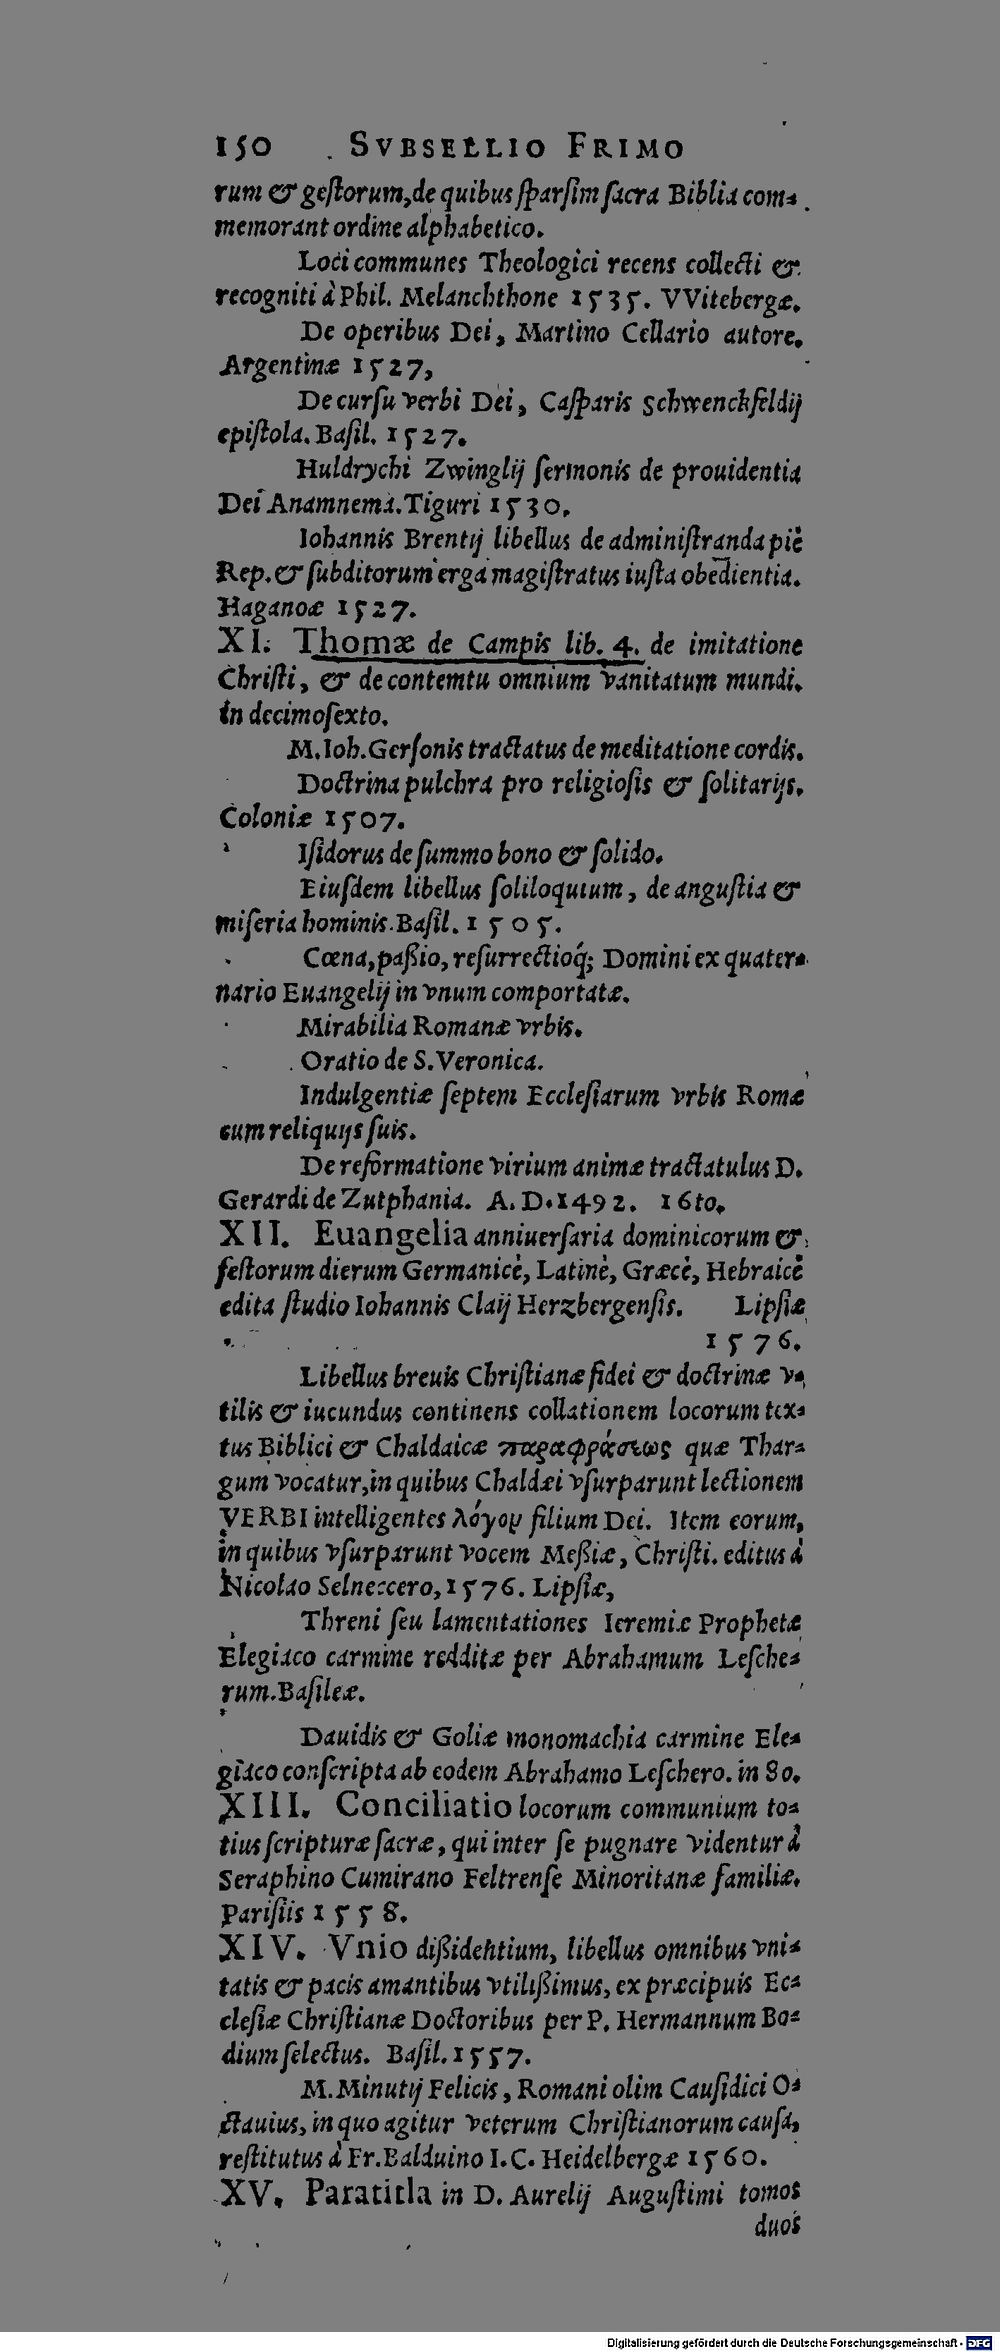 150 SVBSELLIO FRIMO
rum & geſtorum, de quibus ſparſim ſacra Biblia com-
memorant ordine alphabetico.
Loci communes Theologici recens collecti &
recogniti à Phil. Melanchthone 1535. VVitebergæ.
De operibus Dei, Martino Cellario autore.
Argentinæ 1527,
De curſu verbi Dei, Caſparis Schwenckfeldij
epiſtola. Baſil. 1527.
Huldrychi Zwinglij ſermonis de prouidentia
Dei Anamnema. Tiguri 1530.
Iohannis Brentij libellus de adminiſtranda piè
Rep. & ſubditorum erga magiſtratus iuſta obedientia.
Haganoæ 1527.
XI. Thomæ de Campis lib. 4. de imitatione
Chriſti, & de contemtu omnium vanitatum mundi.
in decimoſexto.
M. Ioh. Gerſonis tractatus de meditatione cordis.
Doctrina pulchra pro religioſis & ſolitarijs.
Coloniæ 1507.
Iſidorus de ſummo bono & ſolido.
Eiuſdem libellus ſoliloquium, de anguſtia &
miſeria hominis. Baſil. 1505.
Cœna, paßio, reſurrectioq́; Domini ex quater-
nario Euangelij in vnum comportatæ.
Mirabilia Romanæ vrbis.
Oratio de S. Veronica.
Indulgentiæ ſeptem Eccleſiarum vrbis Romæ
cum reliquijs ſuis.
De reformatione virium animæ tractatulus D.
Gerardi de Zutphania. A. D. 1492. 16to.
XII. Euangelia anniuerſaria dominicorum &
feſtorum dierum Germanicè, Latinè, Græcè, Hebraicè
edita ſtudio Iohannis Claij Herzbergenſis. Lipſiæ
1576.
Libellus breuis Chriſtianæ fidei & doctrinæ v-
tilis & iucundus continens collationem locorum tex-
tus Biblici & Chaldaicæ παραφράσεως quæ Thar-
gum vocatur, in quibus Chaldæi vſurparunt lectionem
VERBI intelligentes λόγον filium Dei. Item eorum,
in quibus vſurparunt vocem Meßiæ, Chriſti. editus à
Nicolao Selneccero, 1576. Lipſiæ,
Threni ſeu lamentationes Ieremiæ Prophetæ
Elegiaco carmine redditæ per Abrahamum Leſche-
rum. Baſileæ.
Dauidis & Goliæ monomachia carmine Ele-
giaco conſcripta ab eodem Abrahamo Leſchero. in 8o.
XIII. Conciliatio locorum communium to-
tius ſcripturæ ſacræ, qui inter ſe pugnare videntur à
Seraphino Cumirano Feltrenſe Minoritanæ familiæ.
Pariſiis 1558.
XIV. Vnio dißidentium, libellus omnibus vni-
tatis & pacis amantibus vtilißimus, ex præcipuis Ec-
cleſiæ Chriſtianæ Doctoribus per P. Hermannum Bo-
dium ſelectus. Baſil. 1557.
M. Minutij Felicis, Romani olim Cauſidici O-
ctauius, in quo agitur veterum Chriſtianorum cauſa,
reſtitutus à Fr. Balduino I. C. Heidelbergæ 1560.
XV. Paratitla in D. Aurelij Auguſtimi tomos
duos
Digitalisierung gefördert durch die Deutsche Forschungsgemeinschaft - DFG